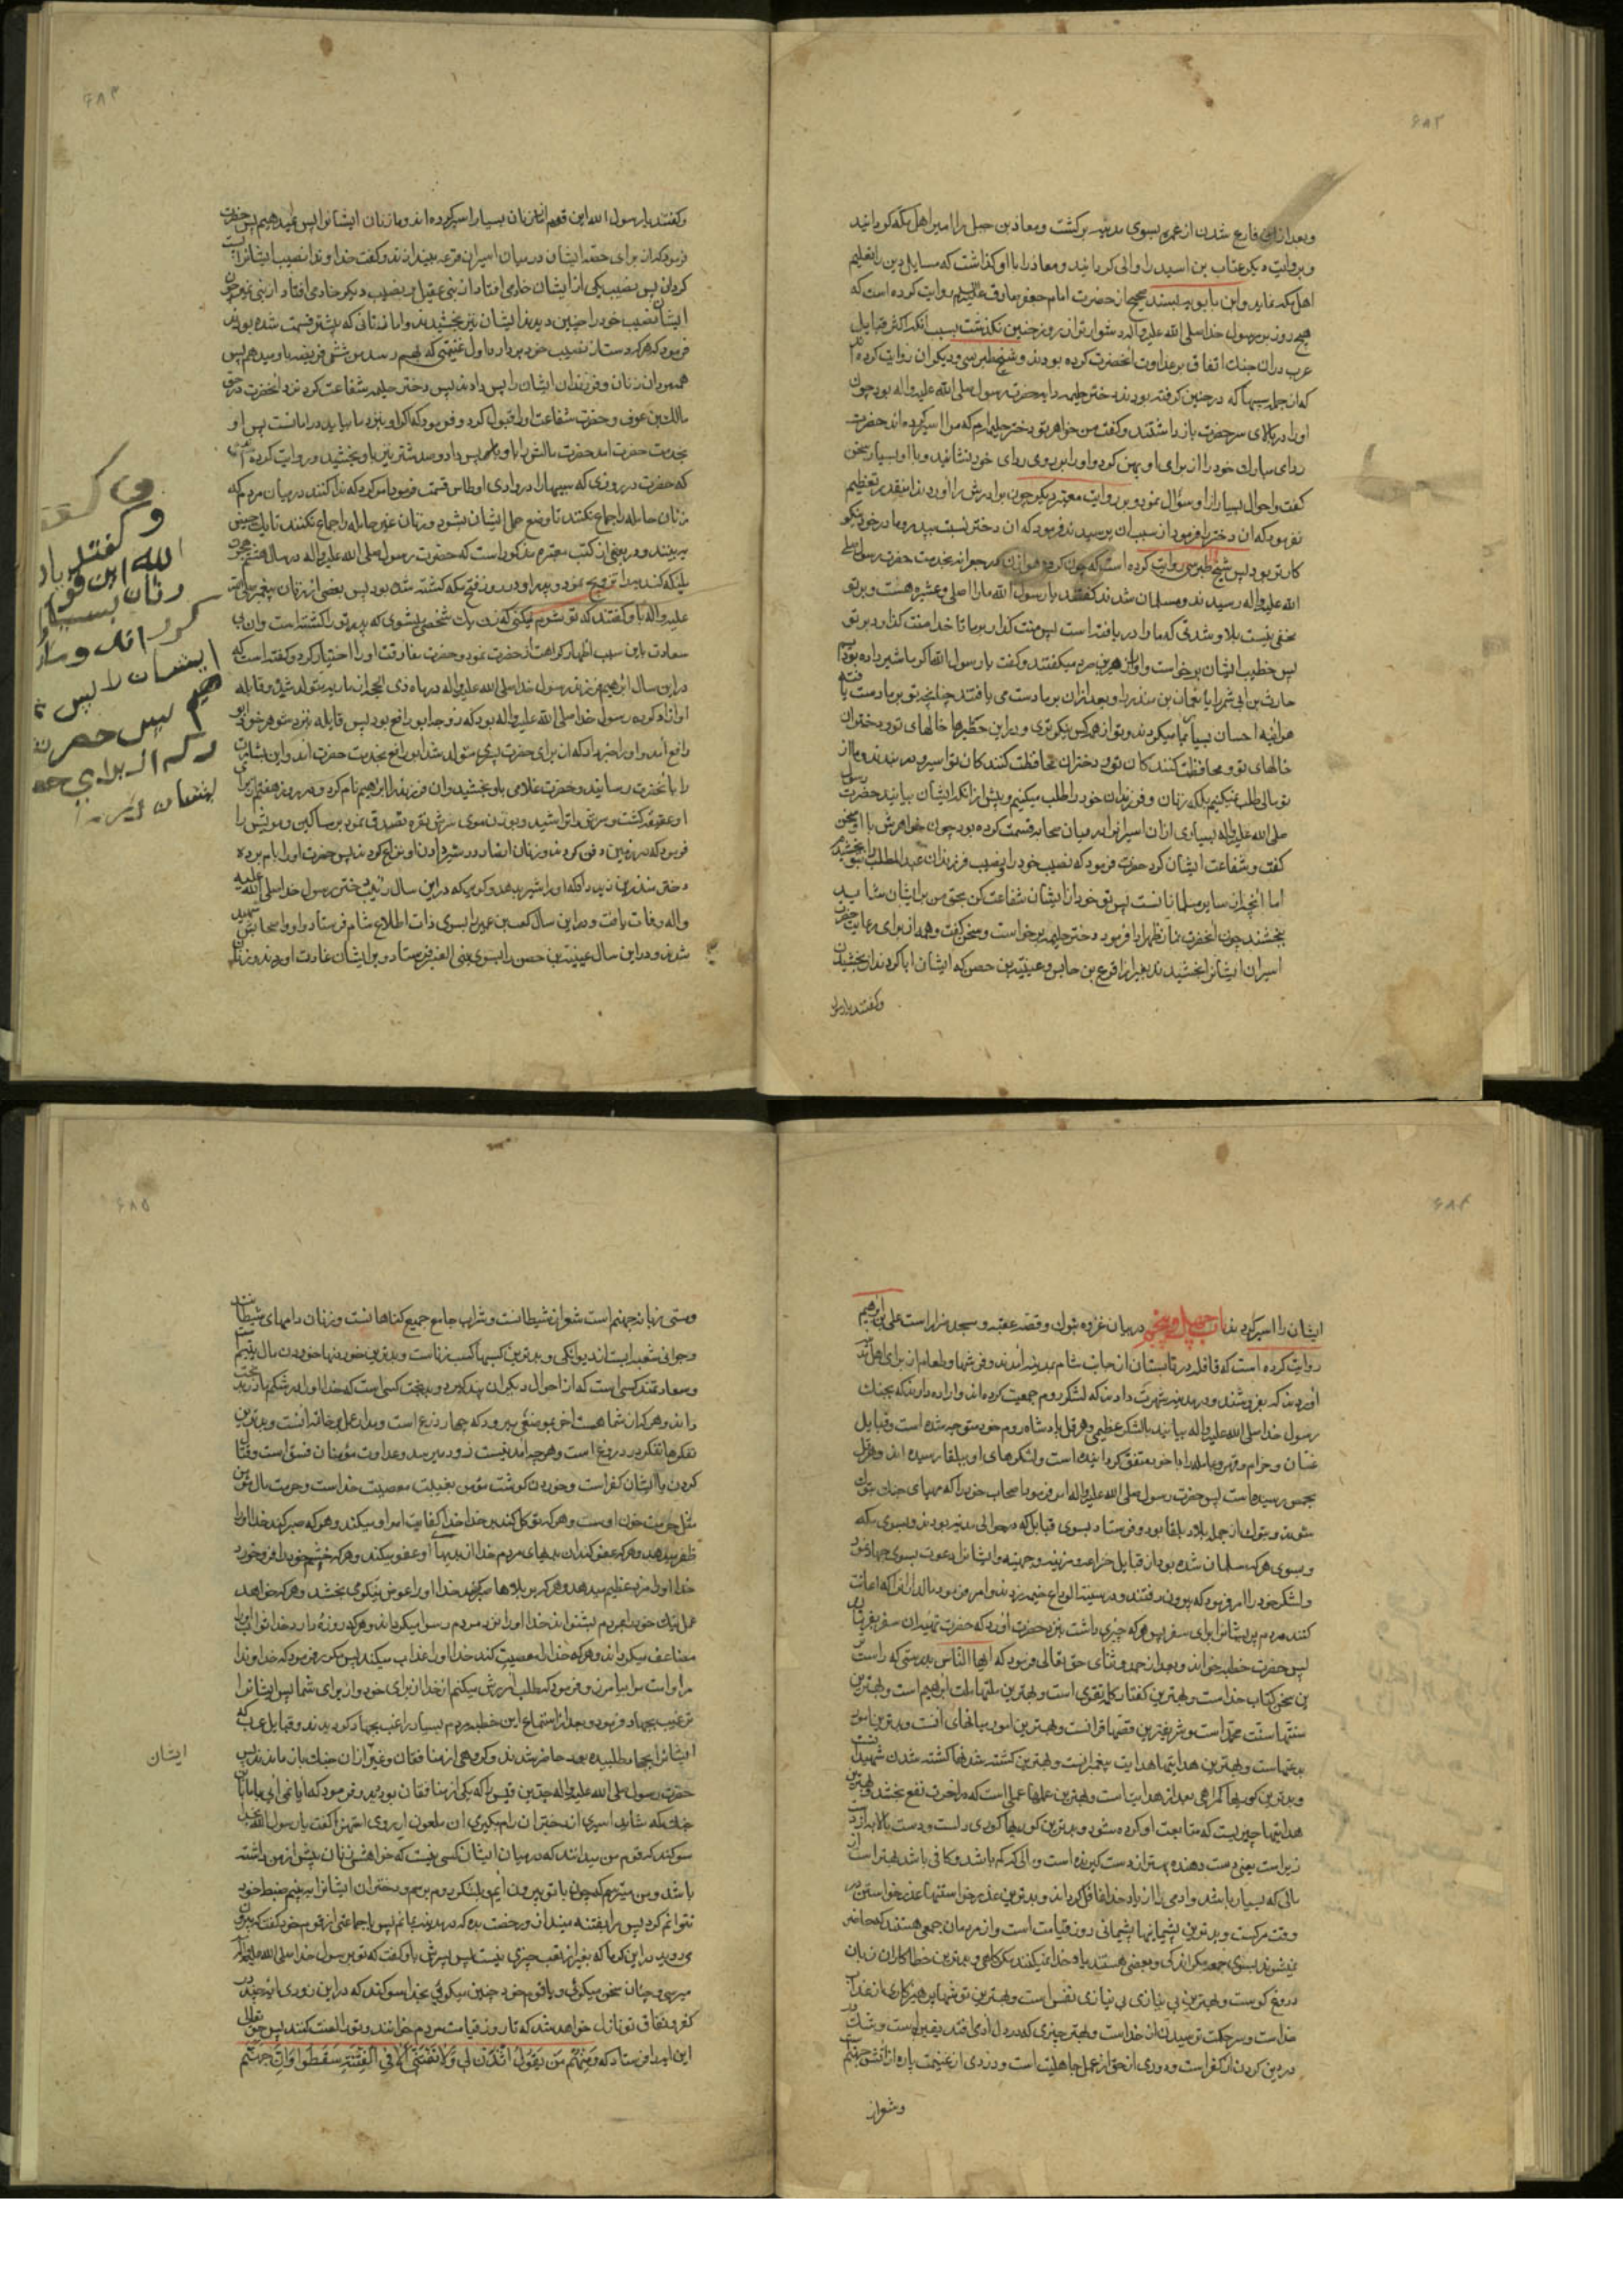 ۶۸۲
وبعد ازان فارغ شدن از عمره بسوی مدینه برکشت ومعاذ بن جبل را امیر اهل مکه کردانید
وبروایت دیکر عتاب بن اسید را والی کردانید ومعاذ را با او کذاشت که مسایل دین را تعلیم
اهل مکه نماید وابن بابویه بسند صحیح از حضرت امام جعفر صادق علیه السلم روایت کرده است که
هیچ روز بر رسول خدا صلی الله علیه واله دشوارتر از روز حنین نکذشت بسبب آنکه اکثر قبایل
عرب دران جنک اتفاق بر عداوت آنحضرت کرده بودند وشیخ طبرسی ودیکران روایت کرده اند
که از جمله سبیها که در حنین کرفته بودند دختر حلیمه دایه حضرت رسول صلی الله علیه واله بود چون
او را در بالای سر حضرت باز داشتند وکفت من خواهر تو دختر حلیمه ام که مرا اسیر کرده اند حضرت
ردای مبارک خود را از برای او پهن کرد واو را بر روی ردای خود نشانید وبا او بسیار سخن
کفت واحوال بسیار از او سؤال نمود وبروایت معتبر دیکر چون برادرش را آوردند اینقدر تعظیم
نفرمود که آن دختر را فرمود از سبب آن پرسیدند فرمود که آن دختر نسبت بپدر ومادر خود نیکو
کارتر بود پس شیخ طبرسی روایت کرده است که چون کروه هوازن در جعرانه بخدمت حضرت رسول صلی
الله علیه واله رسیدند ومسلمان شدند کفتند یا رسول الله ما را اصلی وعشیره هست وبر تو
مخفی نیست بلا وشدتی که ما را دریافته است پس منت کذار بر ما تا خدا منت کذارد بر تو
پس خطیب ایشان برخاست واو را زهیر بن صرد میکفتند وکفت یا رسول الله اکر ما شیر داده بودیم
حارث بن ابی شمر را یا نعمان بن منذر را وبعد ازان بر ما دست می یافتند چنانچه تو بر ما دست یافته
هراینه احسان بسیار بما میکردند وتو از همه کس نیکوتری ودر این حظیرها خالهای تو ودختران
خالهای تو ومحافظت کنندکان تو ودختران محافظت کنندکان تو اسیر ودربندند وما از
تو مالی طلب نمیکنیم بلکه زنان وفرزندان خود را طلب میکنیم وپیش از آنکه ایشان بیایند حضرت رسول
صلی الله علیه واله بسیاری ازان اسیرانرا در میان صحابه قسمت کرده بود چون خواهرش با او سخن
کفت وشفاعت ایشان کرد حضرت فرمود که نصیب خود را ونصیب فرزندان عبد المطلب را بتو بخشیدم
اما آنچه از سایر مسلمانانست پس تو خود از ایشان شفاعت کن بحق من بر ایشان شاید
ببخشند چون آنحضرت نماز ظهر ادا فرمود دختر حلیمه برخاست وسخن کفت وهمه از برای رعایت حضرت
اسیران ایشانرا بخشیدند بغیر از اقرع بن حابس وعیینة بن حصن که ایشان ابا کردند از بخشیدن
وکفتند یا رسول
۶۸۳
وکفتند یا رسول الله این قوم از ما زنان بسیار اسیر کرده اند وما زنان ایشانرا پس نمیدهیم پس حضرت
فرمود که از برای حصه ایشان در میان اسیران قرعه بیندازند وکفت خداوندا نصیب ایشانرا پست
کردان پس بنصیب یکی از ایشان خادمی افتاد از بنی عقیل وبنصیب دیکر خادمی افتاد از بنی نمیر چون
ایشان نصیب خود را چنین دیدند ایشان نیز بخشیدند واما زنانی که پیشتر قسمت شده بودند
فرمود که هرکه دست از نصیب خود بردارد اول غنیمتی که بهم رسد من شش فریضه باو میدهم پس
همه مردان زنان وفرزندان ایشان را پس دادند پس دختر حلیمه شفاعت کرد نزد آنحضرت در حق
مالک بن عوف وحضرت شفاعت او را قبول کرد وفرمود که اکر او بنزد ما بیاید در امانست پس او
بخدمت حضرت آمد حضرت مالش را باو پس داد وصد شتر نیز باو بخشید وروایت کرده اند
که حضرت در روزی که سبیها را در وادی اوطاس قسمت فرمود امر کرد که ندا کنند در میان مردم که
زنان حامله را جماع نکنند تا وضع حمل ایشان بشود وزنان غیر حامله را جماع نکنند تا یک حیض
ببینند ودر بعضی از کتب معتبره مذکور است که حضرت رسول صلی الله علیه واله در سال هشتم هجرت
ملیکه کندیه را تزویج نمود وپدر او در روز فتح مکه کشته شده بود پس بعضی از زنان پیغمبر صلی الله
علیه واله باو کفتند که تو شرم نمیکنی که زن یک شخصی بشوی که پدر تو را کشته است وان بی
سعادت باین سبب اظهار کراهت از حضرت نمود وحضرت مفارقت او را اختیار کرد وکفته است که
در این سال ابراهیم فرزند رسول خدا صلی الله علیه واله در ماه ذی الحجه از ماریه متولد شد وقابله
او آزاد کرده رسول خدا صلی الله علیه واله بود که زوجه ابو رافع بود پس قابله بنزد شوهر خود ابو
رافع آمد واو را خبر داد که از برای حضرت پسری متولد شد ابو رافع بخدمت حضرت آمد واین بشارت
را بآنحضرت رسانید وحضرت غلامی باو بخشید وان فرزند را ابراهیم نام کرد ودر روز هفتم برای
او عقیقه کشت وسرش را تراشید وبوزن موی سرش نقره تصدق نمود بر مساکین ومویش را
فرمود که در زمین دفن کردند وزنان انصار در شیر دادن او نزاع کردند پس حضرت او را بام برده
دختر منذر بن زید داد که او را شیر بدهد وکویند که در این سال زینب دختر رسول خدا صلی الله علیه
واله وفات یافت ودر این سال کعب بن عمیر را بسوی ذات اطلاع شام فرستاد واو با اصحابش شهید
شدند ودر این سال عیینة بن حصن را بسوی بنی العنبر فرستاد وبر ایشان غارت آوردند وزنان
وکفتند یا
الله این قو
زنان بسیا
کرد اند وما
ایشان را پس
پس حضر
۶۸۴
ایشان را اسیر کردند باب چهل وپنجم در بیان غزوه تبوک وقصه عقبه ومسجد ضرار است علی بن ابرهیم
روایت کرده است که قافله در تابستان از جانب شام بمدینه آمدند وفرشها وطعام از برای اهل مدینه
آوردند که بفروشند ودر مدینه شهرت دادند که لشکر روم جمعیت کرده اند واراده دارند که بجنک
رسول خدا صلی الله علیه واله بیایند با لشکر عظیمی وهرقل پادشاه روم خود متوجه شده است وقبایل
غسان وجزام وبهرا وعامله را با خود متفق کردانیده است ولشکرهای او ببلقا رسیده اند وهرقل
بحمص رسیده است پس حضرت رسول صلی الله علیه واله امر فرمود اصحاب خود را که مهیای جنک تبوک
شوند وتبوک از جمله بلاد بلقا بود وفرستاد بسوی قبایل که در حوالی مدینه بودند وبسوی مکه
وبسوی هرکه مسلمان شده بود از قبایل خزاعه ومزینه وجهینه وایشانرا دعوت بسوی جهاد نمود
ولشکر خود را امر فرمود که بیرون رفتند ودر ثنیة الوداع خیمه زدند وامر فرمود مالدارانرا که اعانت
کنند مردم پریشانرا برای سفر پس هرکه چیزی داشت بنزد حضرت آورد که حضرت تهیه آن سفر بفرماید
پس حضرت خطبه خواند وبعد از حمد وثنای حق تعالی فرمود که ایها الناس بدرستی که راست
ترین سخن کتاب خداست وبهترین کفتار کلمه تقوی است وبهترین ملتها ملت ابرهیم است وبهترین
سنتها سنت محمد است وشریفترین قصها قرانست وبهترین امور میانهای آنست وبدترین امور
بدعتهاست وبهترین هدایتها هدایت پیغمبرانست وبهترین کشته شدنها کشته شدن شهیدانست
وبدترین کوریها کمراهی بعد از هدایت است وبهترین عملها عملی است که در آخرت نفع بخشد وبهترین
هدایتها چیزیست که متابعت او کرده شود وبدترین کوریها کوری دلست ودست بالا بهتر از دست
زیر است یعنی دست دهنده بهتر از دست کیرنده است ومالی که کم باشد وکافی باشد بهتر است از
مالی که بسیار باشد وآدمی را از یاد خدا غافل کرداند وبدترین عذر خواستنها عذر خواستن در
وقت مرکست وبدترین پشیمانیها پشیمانی روز قیامت است واز مردمان جمعی هستند که حاضر
نمیشوند بسوی جمعه مکر اندکی وبعضی هستند یاد خدا نمیکنند مکر کاهی وبدترین خطاکاران زبان
دروغ کوست وبهترین بی نیازی بی نیازی نفس است وبهترین توشها پرهیزکاری از عذاب
خداست وسر حکمت ترسیدن از خداست وبهتر چیزی که در دل آدمی افتد یقین است وشک
در دین کردن از کفر است ودوری از حق از عمل جاهلیت است ودزدی از غنیمت پاره از آتش جهنم
وشعر از
۶۸۵
ومستی زبانه جهنم است شعر از شیطانست وشراب جامع جمیع کناهانست وزنان دامهای شیطانند
وجوانی شعبه ایست از دیوانکی وبدترین کسبها کسب زناست وبدترین خوردنها خوردن مال یتیم
وسعادتمند کسی است که از احوال دیکران پند کیرد وبدبخت کسی است که خدا او را در شکم مادر بدبخت
داند وهرکه از شما هست آخر بموضعی میرود که چهار ذرع است ومدار عمل بر خاتمه آنست وبدترین
فکرها تفکر در دروغ است وهرچه آمدنیست زود میرسد وعداوت مؤمنان فسق است وقتال
کردن با ایشان کفر است وخوردن کوشت مؤمن بغیبت معصیت خداست وحرمت مال مؤمن
مثل حرمت خون اوست وهرکه توکل کند بر خدا خدا کفایت امر او میکند وهرکه صبر کند خدا او را
ظفر میدهد وهرکه عفو کند از بدیهای مردم خدا از بدیهای او عفو میکند وهرکه خشم خود را فرو خورد
خدا او را مزد عظیم میدهد وهرکه بر بلاها صبر کند خدا او را عوض نیکو می بخشد وهرکه خواهد
عمل نیک خود را بمردم بشنواند خدا او را نزد مردم رسوا میکرداند وهرکه روزه دارد خدا ثواب او را
مضاعف میکرداند وهرکه خدا را معصیت کند خدا او را عذاب میکند پس مکرر فرمود که خداوندا
مرا وامت مرا بیامرز وفرمود که طلب آمرزش میکنم از خدا از برای خود واز برای شما پس ایشانرا
ترغیب بجهاد فرمود وبعد از استماع این خطبه مردم بسیار راغب بجهاد کردیدند وقبایل عرب که
ایشانرا بجهاد طلبیده بود حاضر شدند وکروهی از منافقان وغیر ازان جنک باز ماندند پس
ایشان
حضرت رسول صلی الله علیه واله جد بن قیس را که یکی از منافقان بود دید وفرمود که آیا نمی آیی با ما باین
جنک که شاید اسیری از دختران رام بکیری ان ملعون از روی استهزا کفت یا رسول الله بخدا
سوکند که قوم من میدانند که در میان ایشان کسی نیست که خواهش زنان بیش از من داشته
باشد ومن میترسم که چون با تو بیرون آیم وبلشکر روم برسم ودختران ایشانرا ببینم ضبط خود
نتوانم کرد پس مرا بفتنه مینداز ورخصت بده که در مدینه بمانم پس با جماعتی از قوم خود کفت که بیرون
مروید در این کرما که بغیر از تعب چیزی نیست پس پسرش باو کفت که تو بر رسول خدا صلی الله علیه واله
میرسی وچنان سخن میکوئی وباقوم خود چنین میکوئی بخدا سوکند که در این زودی آیه چند در
کفر ونفاق تو نازل خواهد شد که تا روز قیامت مردم بخوانند وتو را لعنت کنند پس حق تعالی
این آیه را فرستاد که وَمِنْهُمْ مَن یَقُولُ ائْذَن لی وَلَا تَفْتِنّی اَلَا فِی الْفِتْنَةِ سَقَطُوا وَاِنَّ جَهَنَّمَ